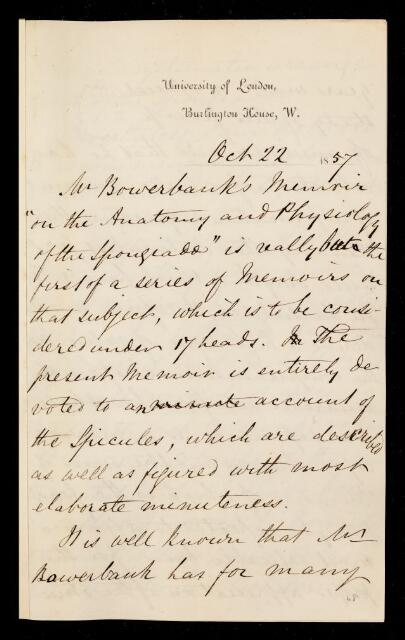 University of London,
Burlington House, W.
Oct 22 1857
Mr Bowerbank's Memoir
"on the Anatomy and Physiology
of the Spongiadæ" is really but the
first of a series of Memoirs on
that subject, which is to be consi-
dered under 17 heads. In The
present Memoir is entirely de
voted to an minute account of
the Spicules, which are described
as well as figured with most
elaborate minuteness.
It is well known that Mr
Bowerbank has for many